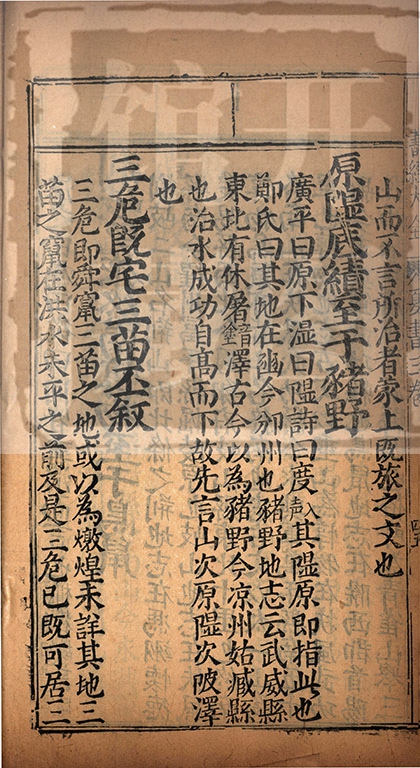 山而不言所治者蒙上既旅之文也
原隰厎績至于豬野
廣平曰原下濕曰隰詩曰度入聲其隰原即指此也
鄭氏曰其地在豳今邠州也豬野地志云武威縣
東北有休屠䥝澤古今以為豬野今凉州姑臧縣
也治水成功自髙而下故先言山次原隰次陂澤
也
三危既宅三苗丕叙
三危即舜竄三苗之地或以為燉煌未詳其地三
苗之竄在洪水未平之前及是三危已既可居三